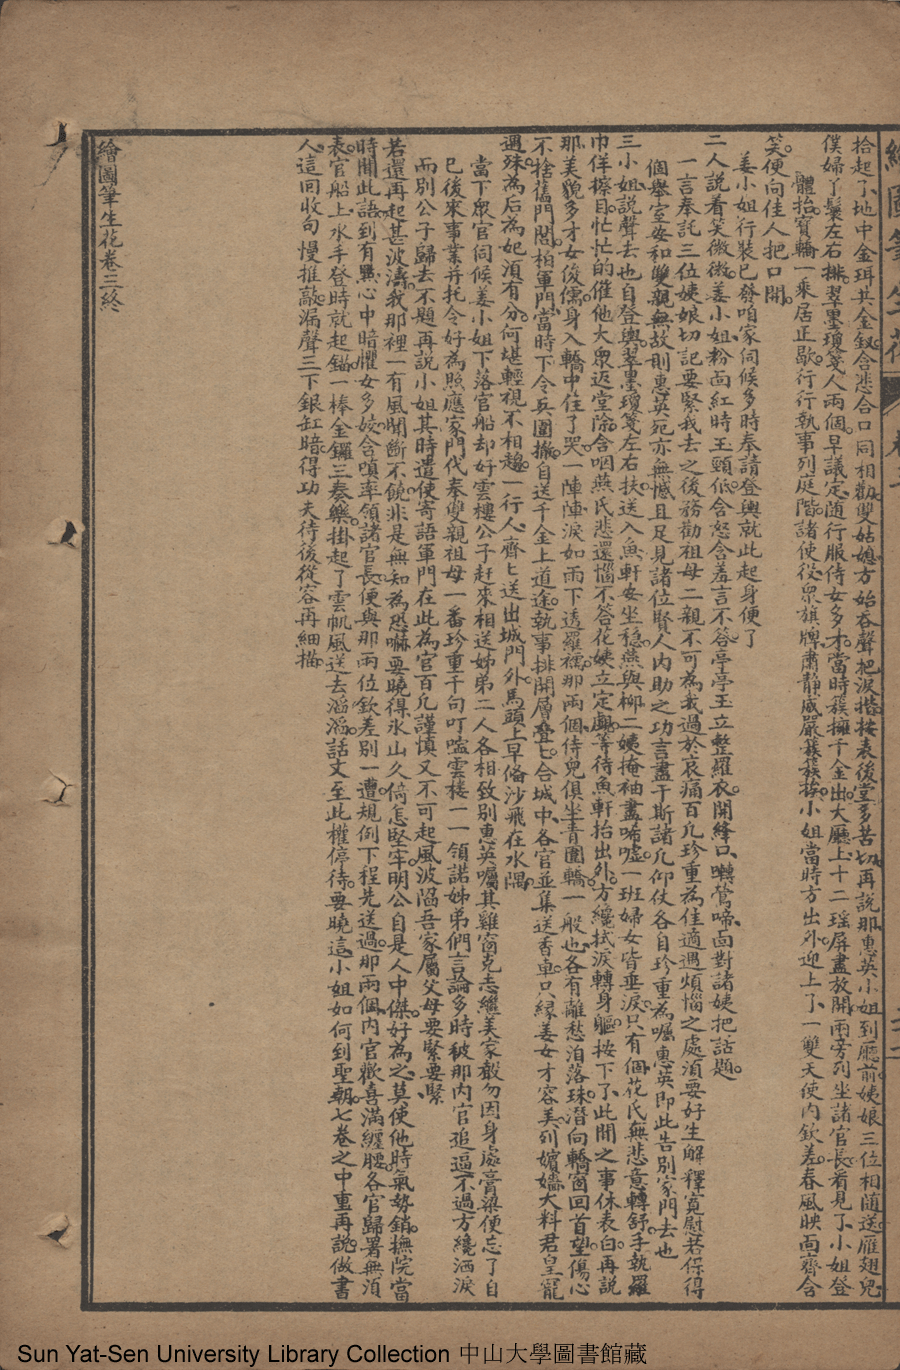 繪圖筆生花 卷三
拾起了地中金珥共金釵含悲合口同相勸雙姑媳方始吞聲把淚揩按表後堂多苦切再説那惠英小姐到廳前姨娘三位相隨送雁翅兒
僕婦丫鬟左右排翠墨瓊箋人兩個早議定隨行服侍女多才當時簇擁千金出大廳上十二瑶屏盡放開兩旁列坐諸官長看見了小姐登
體抬寳轎一乘居正歇行行執事列庭階諸使從眾旗牌肅静威嚴簇簇挨小姐當時方出外迎上了一雙天使内欽差春風映面齊含
笑便向佳人把口開
姜小姐行裝已發咱家伺候多時奉請登輿就此起身便了
二人説看笑微微姜小姐粉面紅時玉頸低含怒含羞言不答亭亭玉立整羅衣開絳口囀鶯啼面對諸姨把話題
一言奉託三位姨娘切記要緊我去之後務勸祖母二親不可為我過於哀痛百凡珍重為佳適遇煩惱之處須要好生解釋寬慰若保得
個舉室安和雙親無故則惠英死亦無憾且足見諸位賢人内助之功言盡于斯諸凡仰仗各自珍重為囑惠英即此告别家門去也
三小姐説聲去也自登輿翠墨瓊箋左右扶送入魚軒安坐穩燕與柳二姨掩袖盡唏嘘一班婦女皆垂淚只有個花氏無悲意轉舒手執羅
巾佯擦目忙忙的催他大眾返堂除含咽燕氏悲還惱不答花姨立定觀等待魚軒抬出外方纔拭淚轉身軀按下了此間之事休表白再説
那美貌多才女俊儒身入轎中住了哭一陣陣淚如雨下透羅襦那兩個侍兒俱坐青圍轎一般也各有離愁泊落珠潛向轎窗回首望傷心
不捨舊門閭柏軍門當時下令兵圍撤自送千金上道途執事排開層叠七合城中各官並集送香車只緣姜女才容美列嬪嬙大料君皇寵
遇殊為后為妃須有分何堪輕視不相趨一行人齊七送出城門外馬頭上早備沙飛在水隅
當下眾官伺候姜小姐下落官船却好雲樓公子赶來相送姊弟二人各相致别惠英囑其雞窗克志繼美家聲勿因身處膏粱便忘了自
已後來事業并托令好為照應家門代奉雙親祖母一番珍重千句叮嚀雲樓一一領諾姊弟們言論多時被那内官追逼不過方纔洒淚
而别公子歸去不題再說小姐其時遣使寄語軍門在此為官百凡謹慎又不可起風波陷吾家屬父母要緊要緊
若還再起甚波濤我那裡一有風聞斷不饒非是無知為恐嚇要曉得氷山久倚怎堅牢明公自是人中傑好為之莫使他時氣勢銷撫院當
時聞此語到有點心中暗懼女多姣含嗔率領諸官長便與那兩位欽差别一遭規例下程先送過那兩個内官歡喜滿纏腰各官歸署無須
表官船上水手登時就起錨一棒金鑼三奏樂掛起了雲帆風送去滔滔話文至此權停待要曉這小姐如何到聖朝七卷之中重再説做書
人這回收句慢推敲漏聲三下銀缸暗得功夫待後從容再細描
繪圖筆生花卷三終
Sun Yat-Sen University Library Collection 中山大學圖書館藏